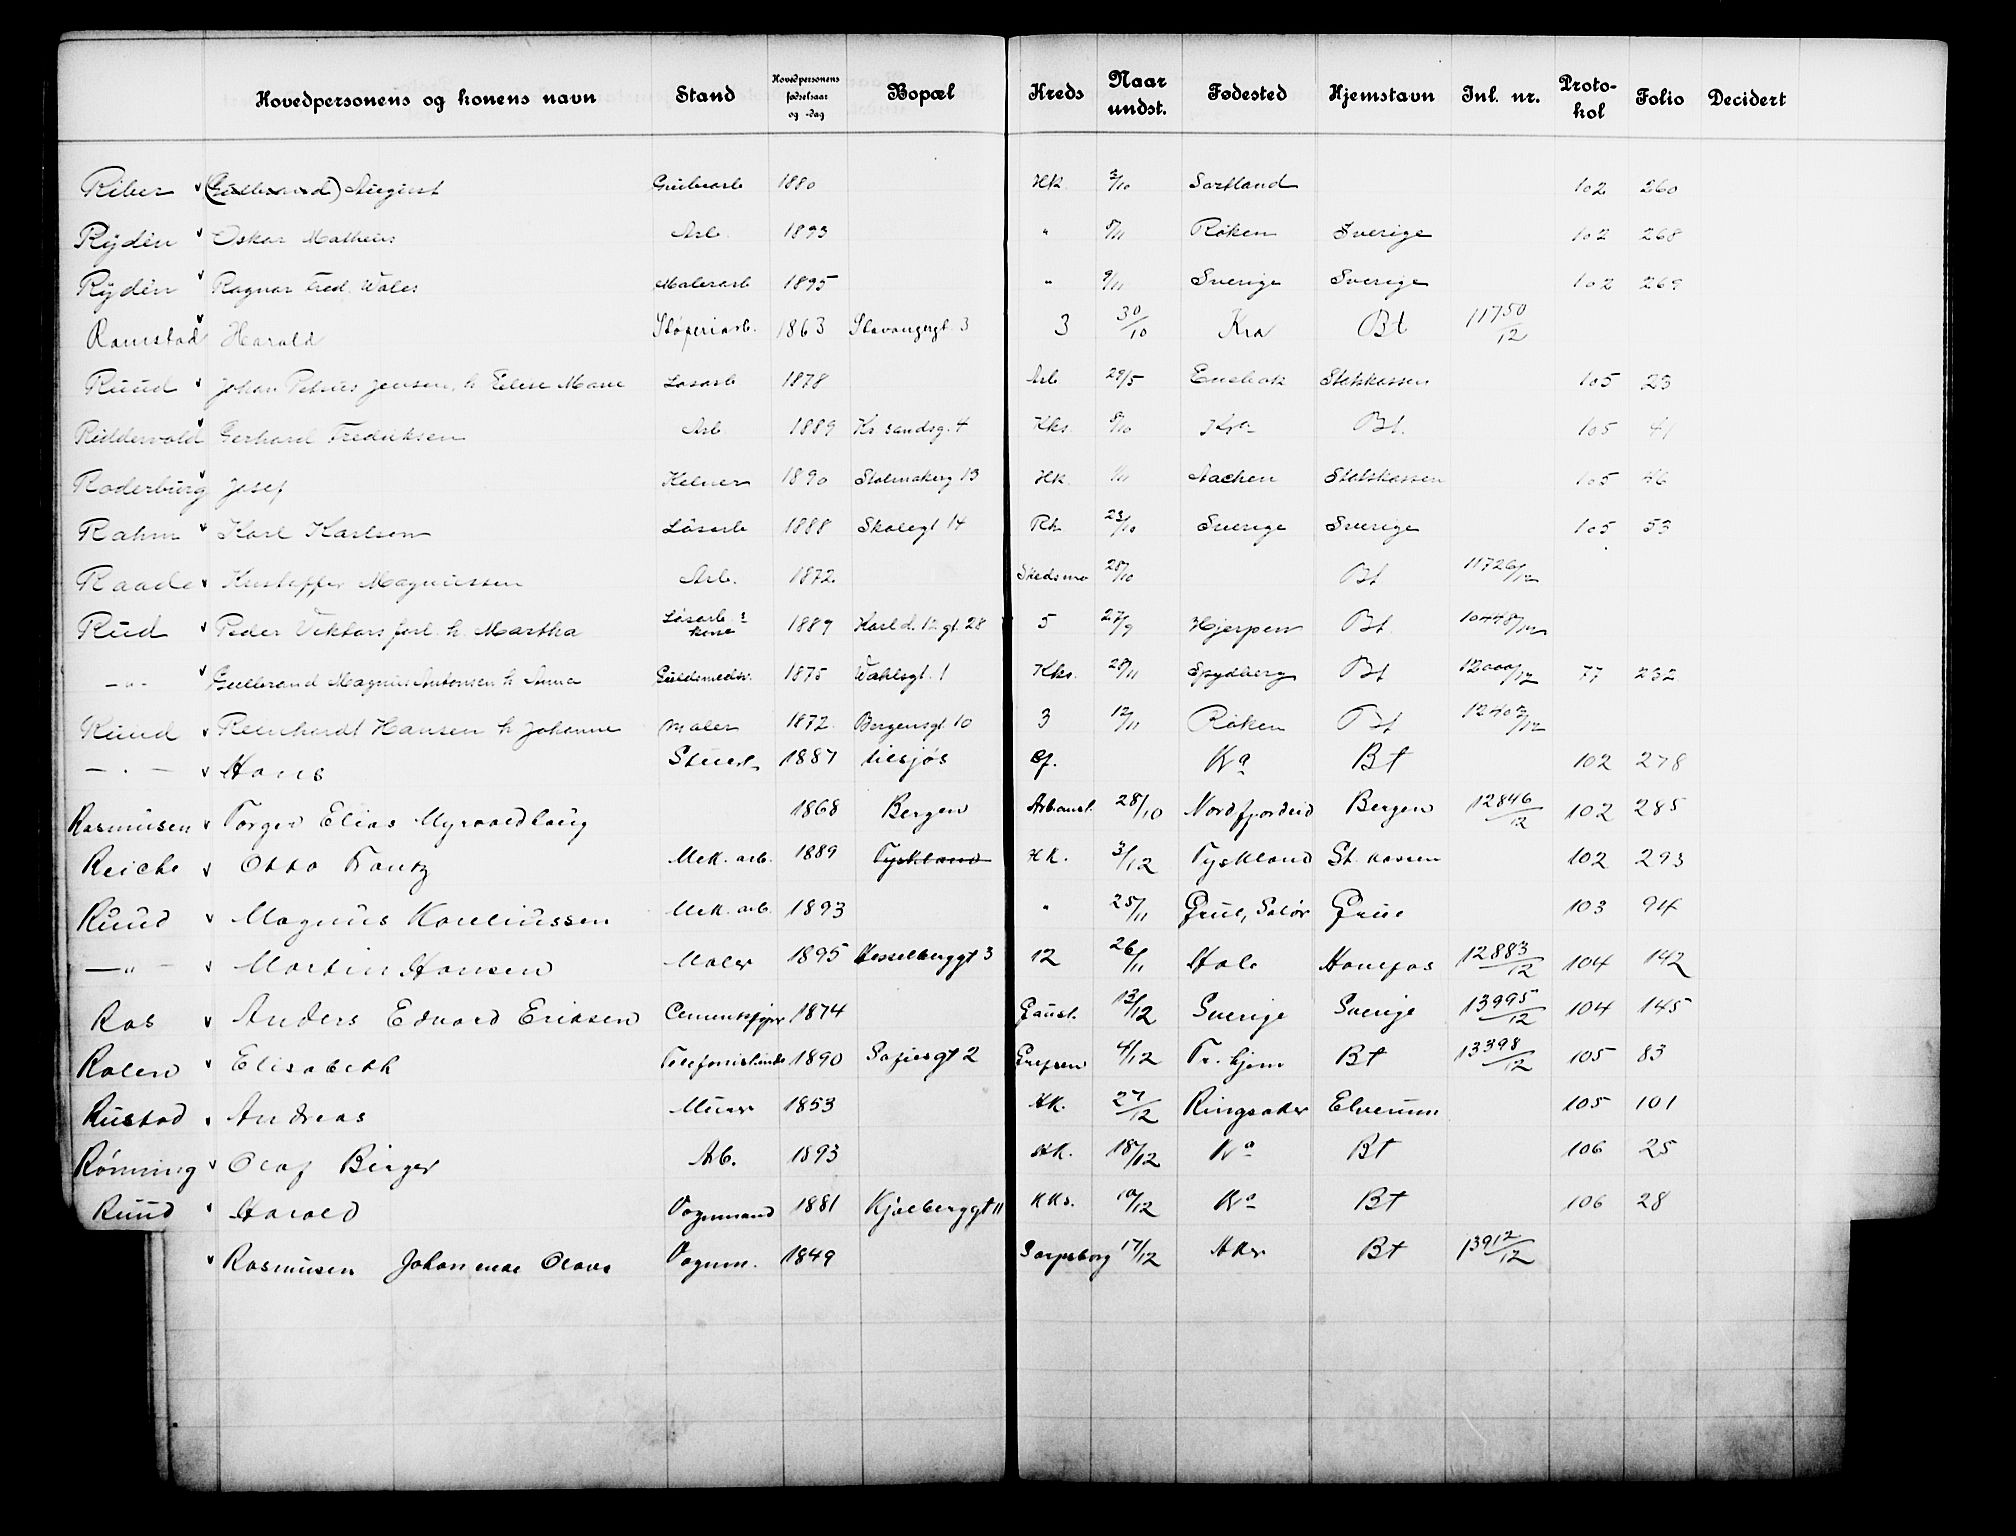 Hovedpersonens og konens navn Stand Hovedpersonens fødselsaar og -dag Bopæl Kreds Naar undst. Fødested Hjemstavn Inl. nr. Protokol Folio Decidert
Riber (Gulbrand) August Grubearb 1880 Hk. 2/10 Sortland 102 260
Rydén Oskar Matheus Arb. 1893 " 5/11 Røken Sverige 102 268
Rydén Ragnar Fred. Wales Malerarb 1895 " 9/11 Sverige Sverige 102 269
Ramstad Harald Støperiarb. 1863 Stavangergt. 3 3 30/10 Kra Bt 11750/12
Ruud Johan Petrus Jensen, h. Ellen Marie Løsarb 1878 Arb 29/5 Enebak Statskassen 105 23
Ridderwold Gerhard Fredriksen Arb 1889 Kr.sandsg. 4 Kks. 8/10 Kra Bt. 105 41
Roderburg Josef Kelner 1890 Stolmakerg 13 Hk. 1/11 Aachen Statskassen 105 46
Rahm Karl Karlsen Løsarb 1888 Skolegt 14 Rh 23/10 Sverige Sverige 105 53
Raade Kristoffer Magnussen Arb. 1872 Skedsmo 28/10 Bt 11726/12
Rud Peder Viktors forl. h. Martha Løsarb.s kone 1889 Karl d. 12 gt. 28 5 27/9 Hjerpen Bt. 10448/12
-"- Gulbrand Magnus Antonsen h Anna Guldsmedsv. 1875 Wahlsgt. 1 Kks. 28/11 Spydberg Bt 12000/12 77 232
Ruud Reinhardt Hansen h Johanne Maler 1872 Bergensgt. 10 3 12/11 Røken Bt 12402/12
- " - Hans Stud. 1887 Ulsjøs Cf. Ka Bt 102 278
Rasmusen Torger Elias Myrvoldhaug 1868 Bergen Arbanst. 28/10 Nordfjordeid Bergen 12846/12 102 285
Reiche Otto Frantz Mek. arb. 1889 Tyskland HK. 3/12 Tyskland St. kassen 102 293
Ruud Magnus Kareliussen Mek. arb. 1893 " 25/11 Grue, Solør Grue 103 94
-"- Martin Hansen Maler 1895 Hesselberggt 3 12 26/11 Hole Hønefos 12883/12 104 142
Ros Anders Edvard Eriksen 1874 Gaust. 13/12 Sverige Sverige 13995/12 104 145
Rolen Elisabeth Telefonistinde 1890 Sofiesgt 2 Grefsen 4/12 Tr. hjem Bt 13398/12 105 83
Rustad Andreas Murer 1853 HK. 27/12 Ringsaker Elverum 105 101
Rønning Olaf Birger Arb. 1893 HK. 18/12 Ka Bt 106 25
Ruud Harald Vognmand 1881 Kjølberggt 11 KKs. 10/12 Ka Bt 106 28
Rasmusen Johannes Olaus Vognm. 1849 Sarpsborg 17/12 Aker Bt 13912/12